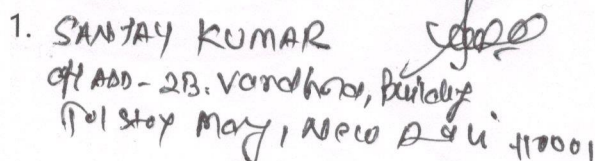 1. SANJAY KUMAR
Off ADD - 2B, Vandhna, Building
Tolstoy Marg, New Delhi 110001